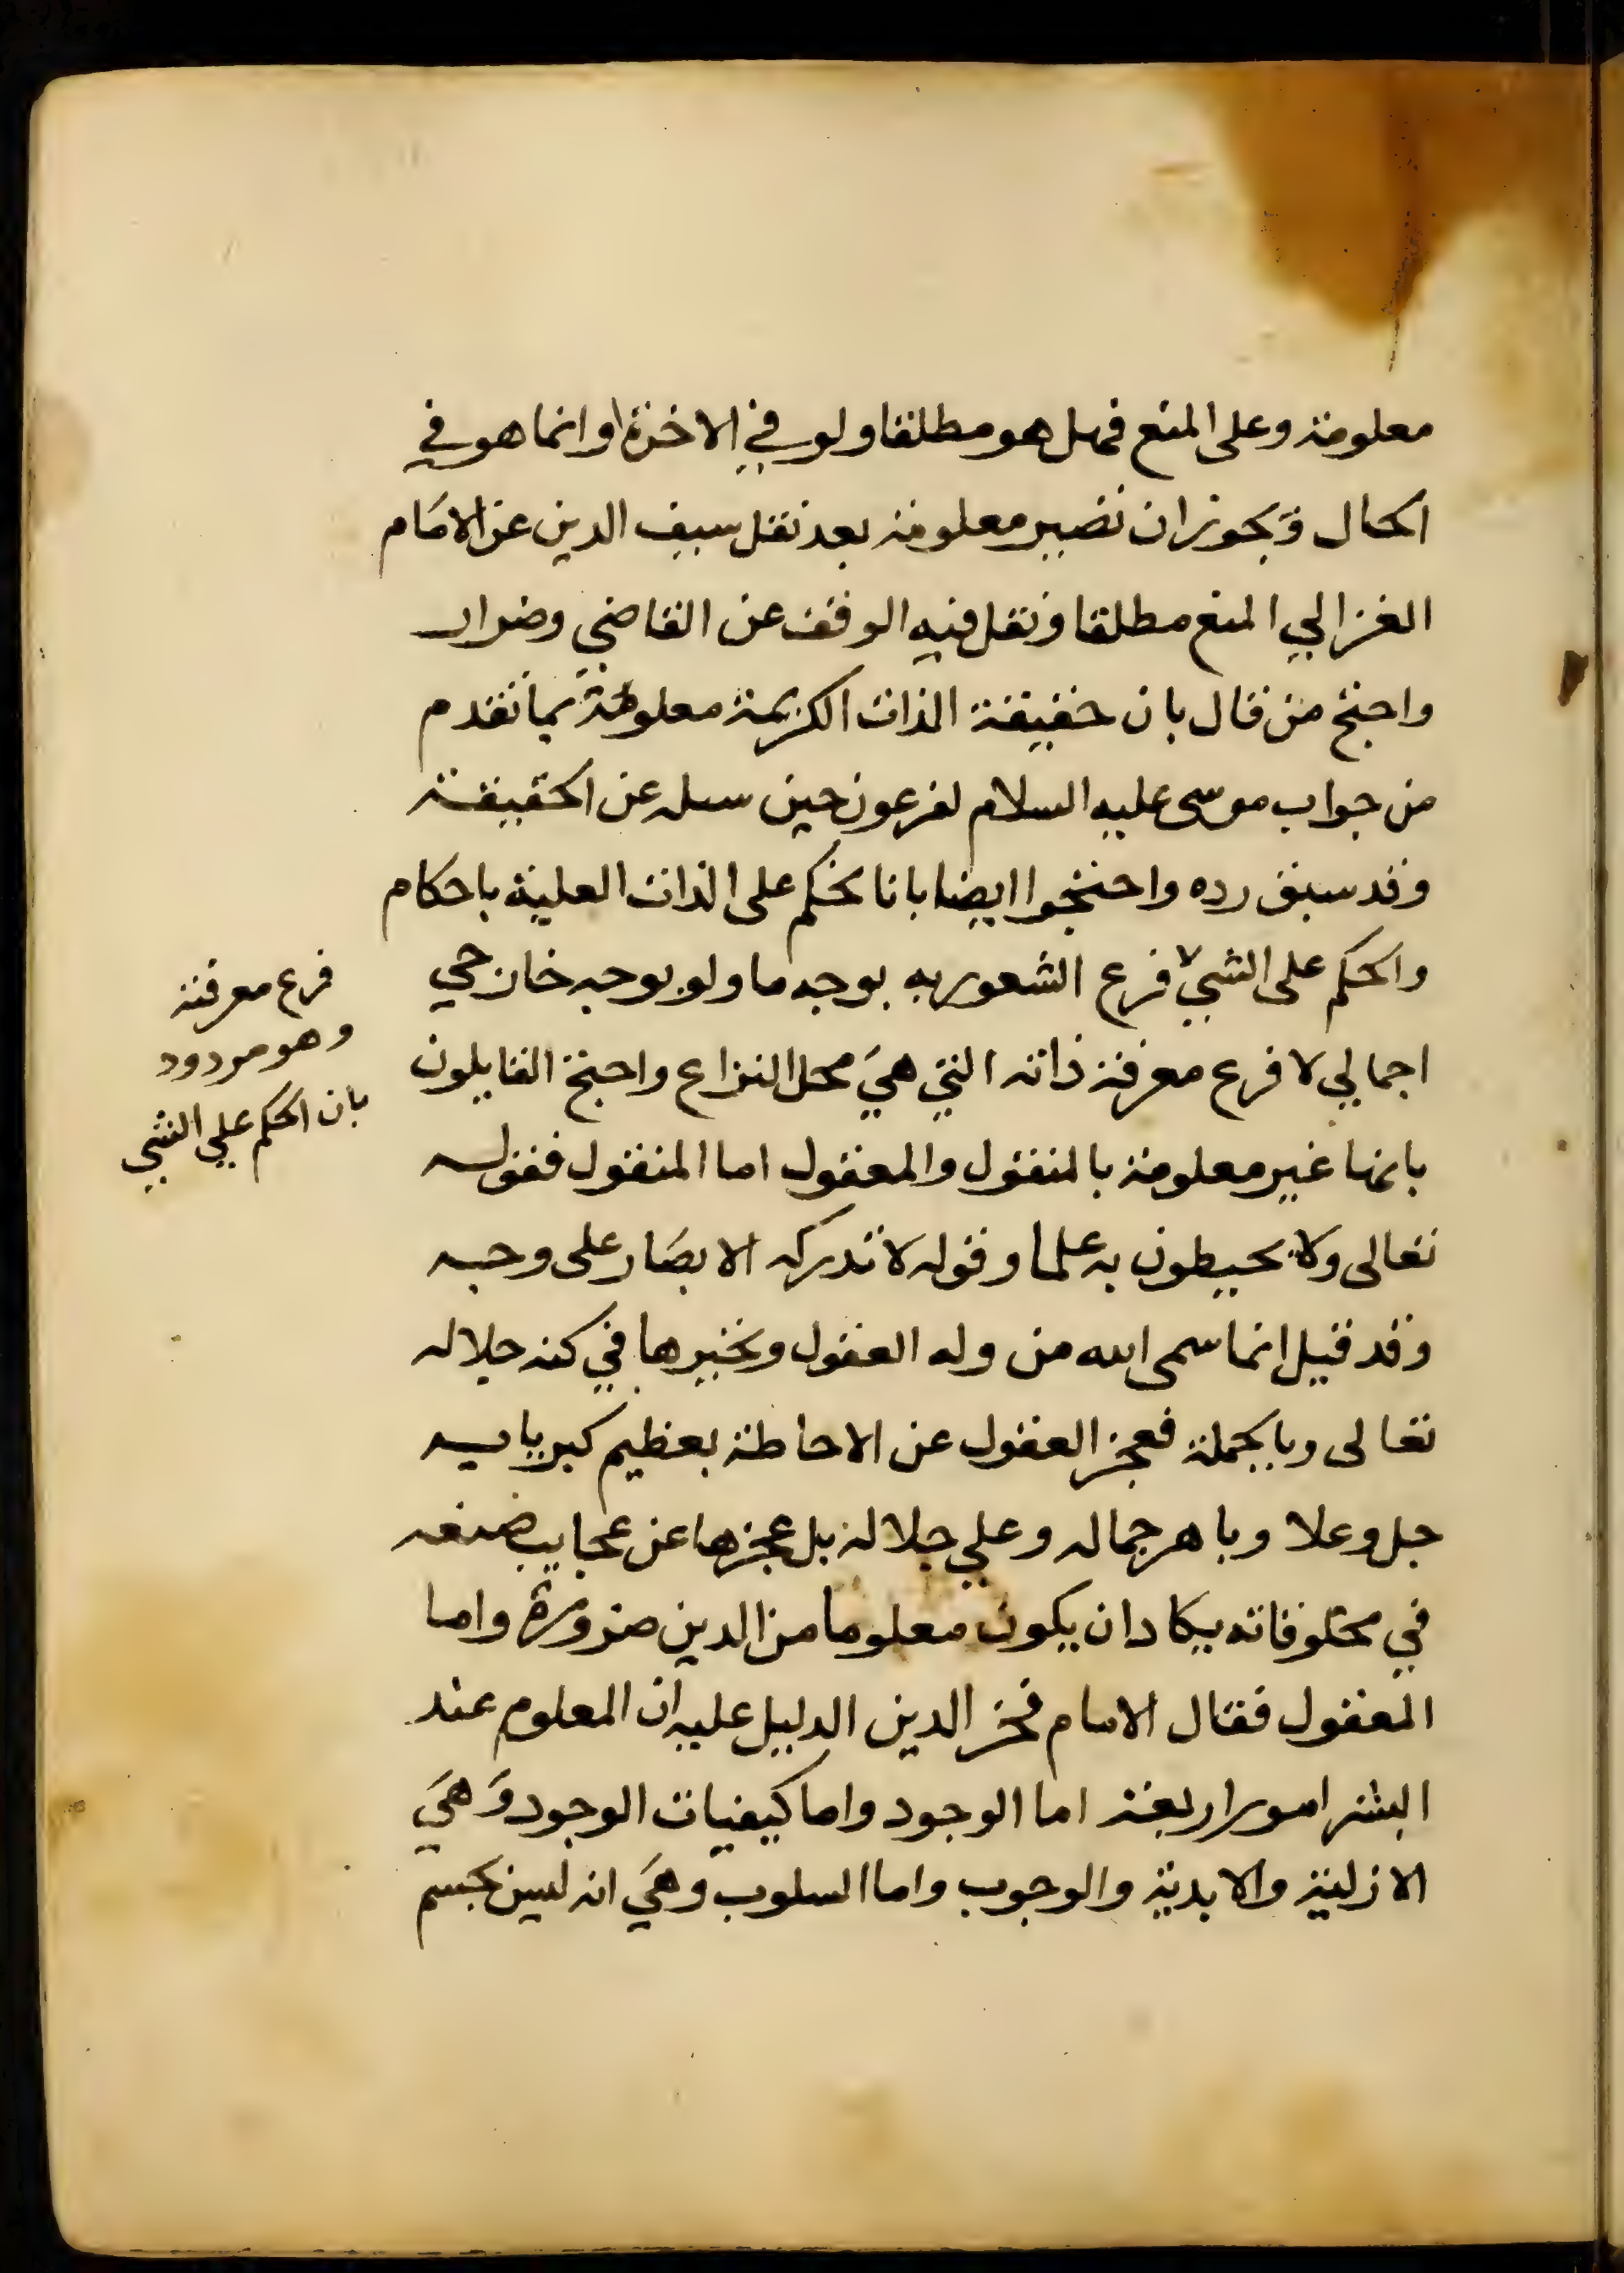 معلومة وعلى المنع فهل هو مطلقا ولو في الاخرة او انما هو في
الحال ويجوز ان تصير معلومة بعد نقل سيف الدين عن الامام
الغزالي المنع مطلقا ونقل فيه الوقف عن القاضي وضرار
واحتج من قال بان حقيقة الذات الكريمة معلومة بما تقدم
من جواب موسى عليه السلام لفرعون حين سىله عن الحقيقة
وقد سبق رده واحتجوا ايضا بانا نحكم على الذات العلية باحكام
والحكم على الشيء فرع الشعور به بوجه ما ولو بوجه خارجي
اجمالي لا فرع معرفة ذاته التي هي محل النزاع واحتج القايلون
بانها غير معلومة بالمنقول والمعقول اما المنقول فقوله
تعالى ولا يحيطون به علما وقوله لا تدركه الابصار على وجه
وقد قيل انما سمى الله من وله العقول وتحيرها في كنه جلاله
تعالى وبالجملة فعجز العقول عن الاحاطة بعظيم كبريايه
جل وعلا وباهر جماله وعلي جلاله بل عجزها عن عجايب صنعه
في مخلوقاته يكاد ان يكون معلوما من الدين ضرورة واما
المعقول فقال الامام فخر الدين الدليل عليه ان المعلوم عند
البشر امور اربعة اما الوجود واما كيفيات الوجود وهي
الازلية والابدية والوجوب واما السلوب وهي انه ليس بجسم
فرع معرفته
وهو مردود
بان الحكم علي الشي